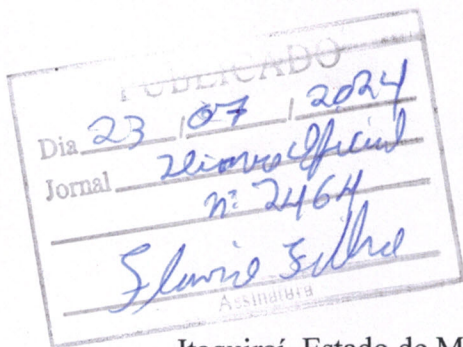 PUBLICADO
Dia 23 / 07 / 2024
Jornal Diário Oficial
nº 2464
Assinatura
Itaquiraí, Estado de M